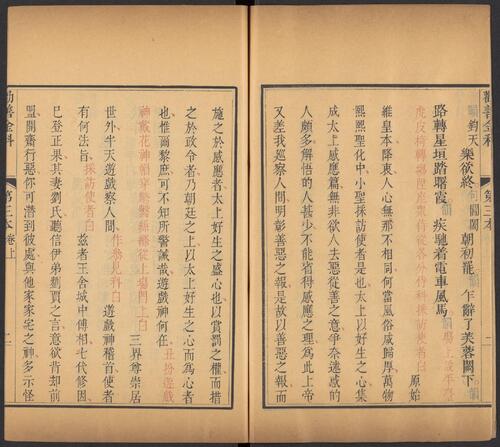 勸善金科 第三本
鈞天樂欲終句閶闔朝初罷韻乍辭了芙蓉闕下韻
路轉星垣踏曙霞韻疾驅着電車風馬韻場上設平臺
虎皮椅轉場陞座衆各分侍科採訪使者白 原始
維皇本降衷人心無那不相同何當風俗咸歸厚萬物
熙熙聖化中小聖採訪使者是也太上以好生之心集
成太上感應篇無非欲人去惡從善之意爭奈迷惑的
人頗多解悟的人甚少不能省得感應之理爲此上帝
又差我巡察人間明彰善惡之報是故以善惡之報而
施之於感應者太上好生之盛心也以賞罰之權而措
之於政令者乃朝廷之上以太上好生之心而爲心者
也惟爾黎庶可不知所警誡哉遊戲神何在丑扮遊戲
神戴花神帽穿從上場門上白 三界尊崇居
世外半天遊戲察人間作參見科白遊戲神稽首使者
有何法旨採訪使者白茲者王舍城中傅相七代修因
已登正果其妻劉氏聽信伊弟劉賈之言意欲肯却前
盟開齋行惡你可潛到彼處與他家家宅之神多示怪
勸善金科 第三本卷上 二